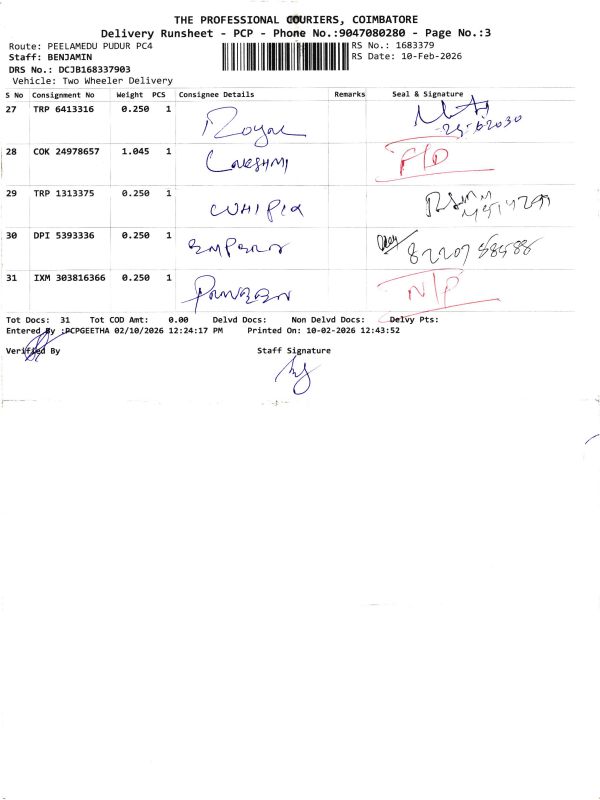 THE PROFESSIONAL COURIERS, COIMBATORE
Delivery Runsheet - PCP - Phone No.:9047080280 - Page No.:3
Route: PEELAMEDU PUDUR PC4 RS No.: 1683379
Staff: BENJAMIN RS Date: 10-Feb-2026
DRS No.: DCJB168337903
Vehicle: Two Wheeler Delivery
S No Consignment No Weight PCS Consignee Details Remarks Seal & Signature
27 TRP 6413316 0.250 1 Royal
28 COK 24978657 1.045 1 LAKSHMI F/D
29 TRP 1313375 0.250 1
30 DPI 5393336 0.250 1 82207 58588
31 IXM 303816366 0.250 1 N/P
Tot Docs: 31 Tot COD Amt: 0.00 Delvd Docs: Non Delvd Docs: Delvy Pts:
Entered By :PCPGEETHA 02/10/2026 12:24:17 PM Printed On: 10-02-2026 12:43:52
Verified By Staff Signature